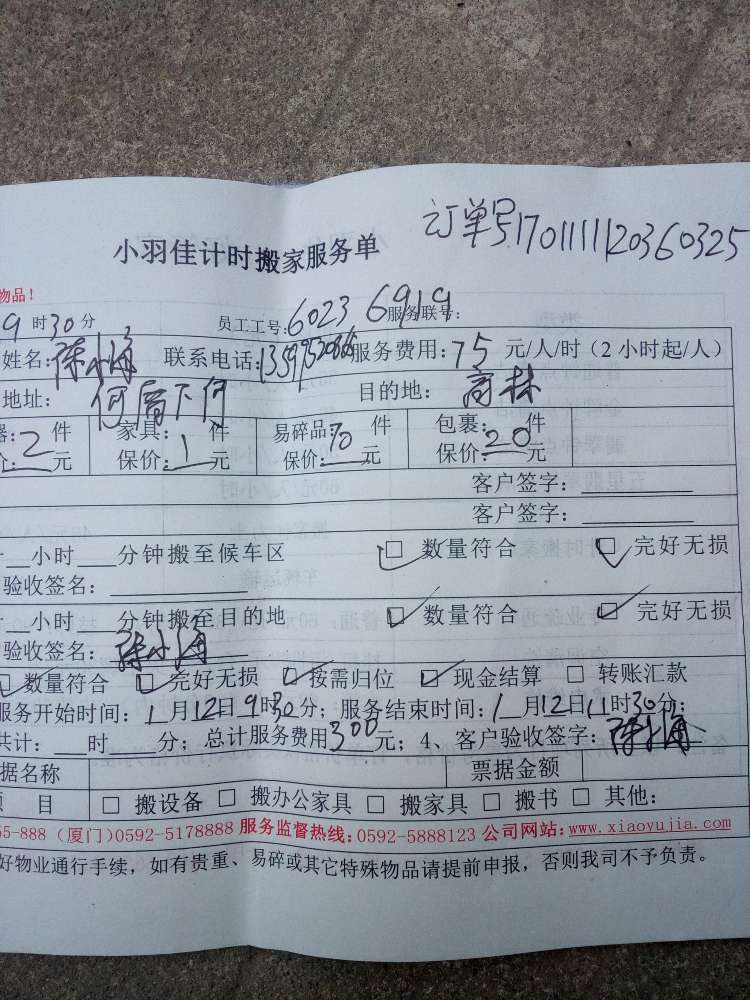 订单号170111120360325
小羽佳计时搬家服务单
物品！
9时30分 员工工号：6023 6919 服务联号：
姓名：陈小海 联系电话： 服务费用：75元/人/时（2小时起/人）
地址：何厝下何 目的地：高林
器：2件 家具：1件 易碎品：10件 包裹：20件
价：元 保价：元 保价：元 保价：元
客户签字：
客户签字：
小时 分钟搬至候车区 ☑ 数量符合 ☑ 完好无损
验收签名：
小时 分钟搬至目的地 ☑ 数量符合 ☑ 完好无损
验收签名：陈小海
☑ 数量符合 ☑ 完好无损 ☑ 按需归位 ☑ 现金结算 □ 转账汇款
服务开始时间：1月12日9时30分；服务结束时间：1月12日11时30分；
共计：时 分；总计服务费用300元；4、客户验收签字：陈小海
据名称 票据金额
项 目 □ 搬设备 □ 搬办公家具 □ 搬家具 □ 搬书 □ 其他：
55-888（厦门）0592-5178888 服务监督热线：0592-5888123 公司网站：www.xiaoyujia.com
好物业通行手续，如有贵重、易碎或其它特殊物品请提前申报，否则我司不予负责。